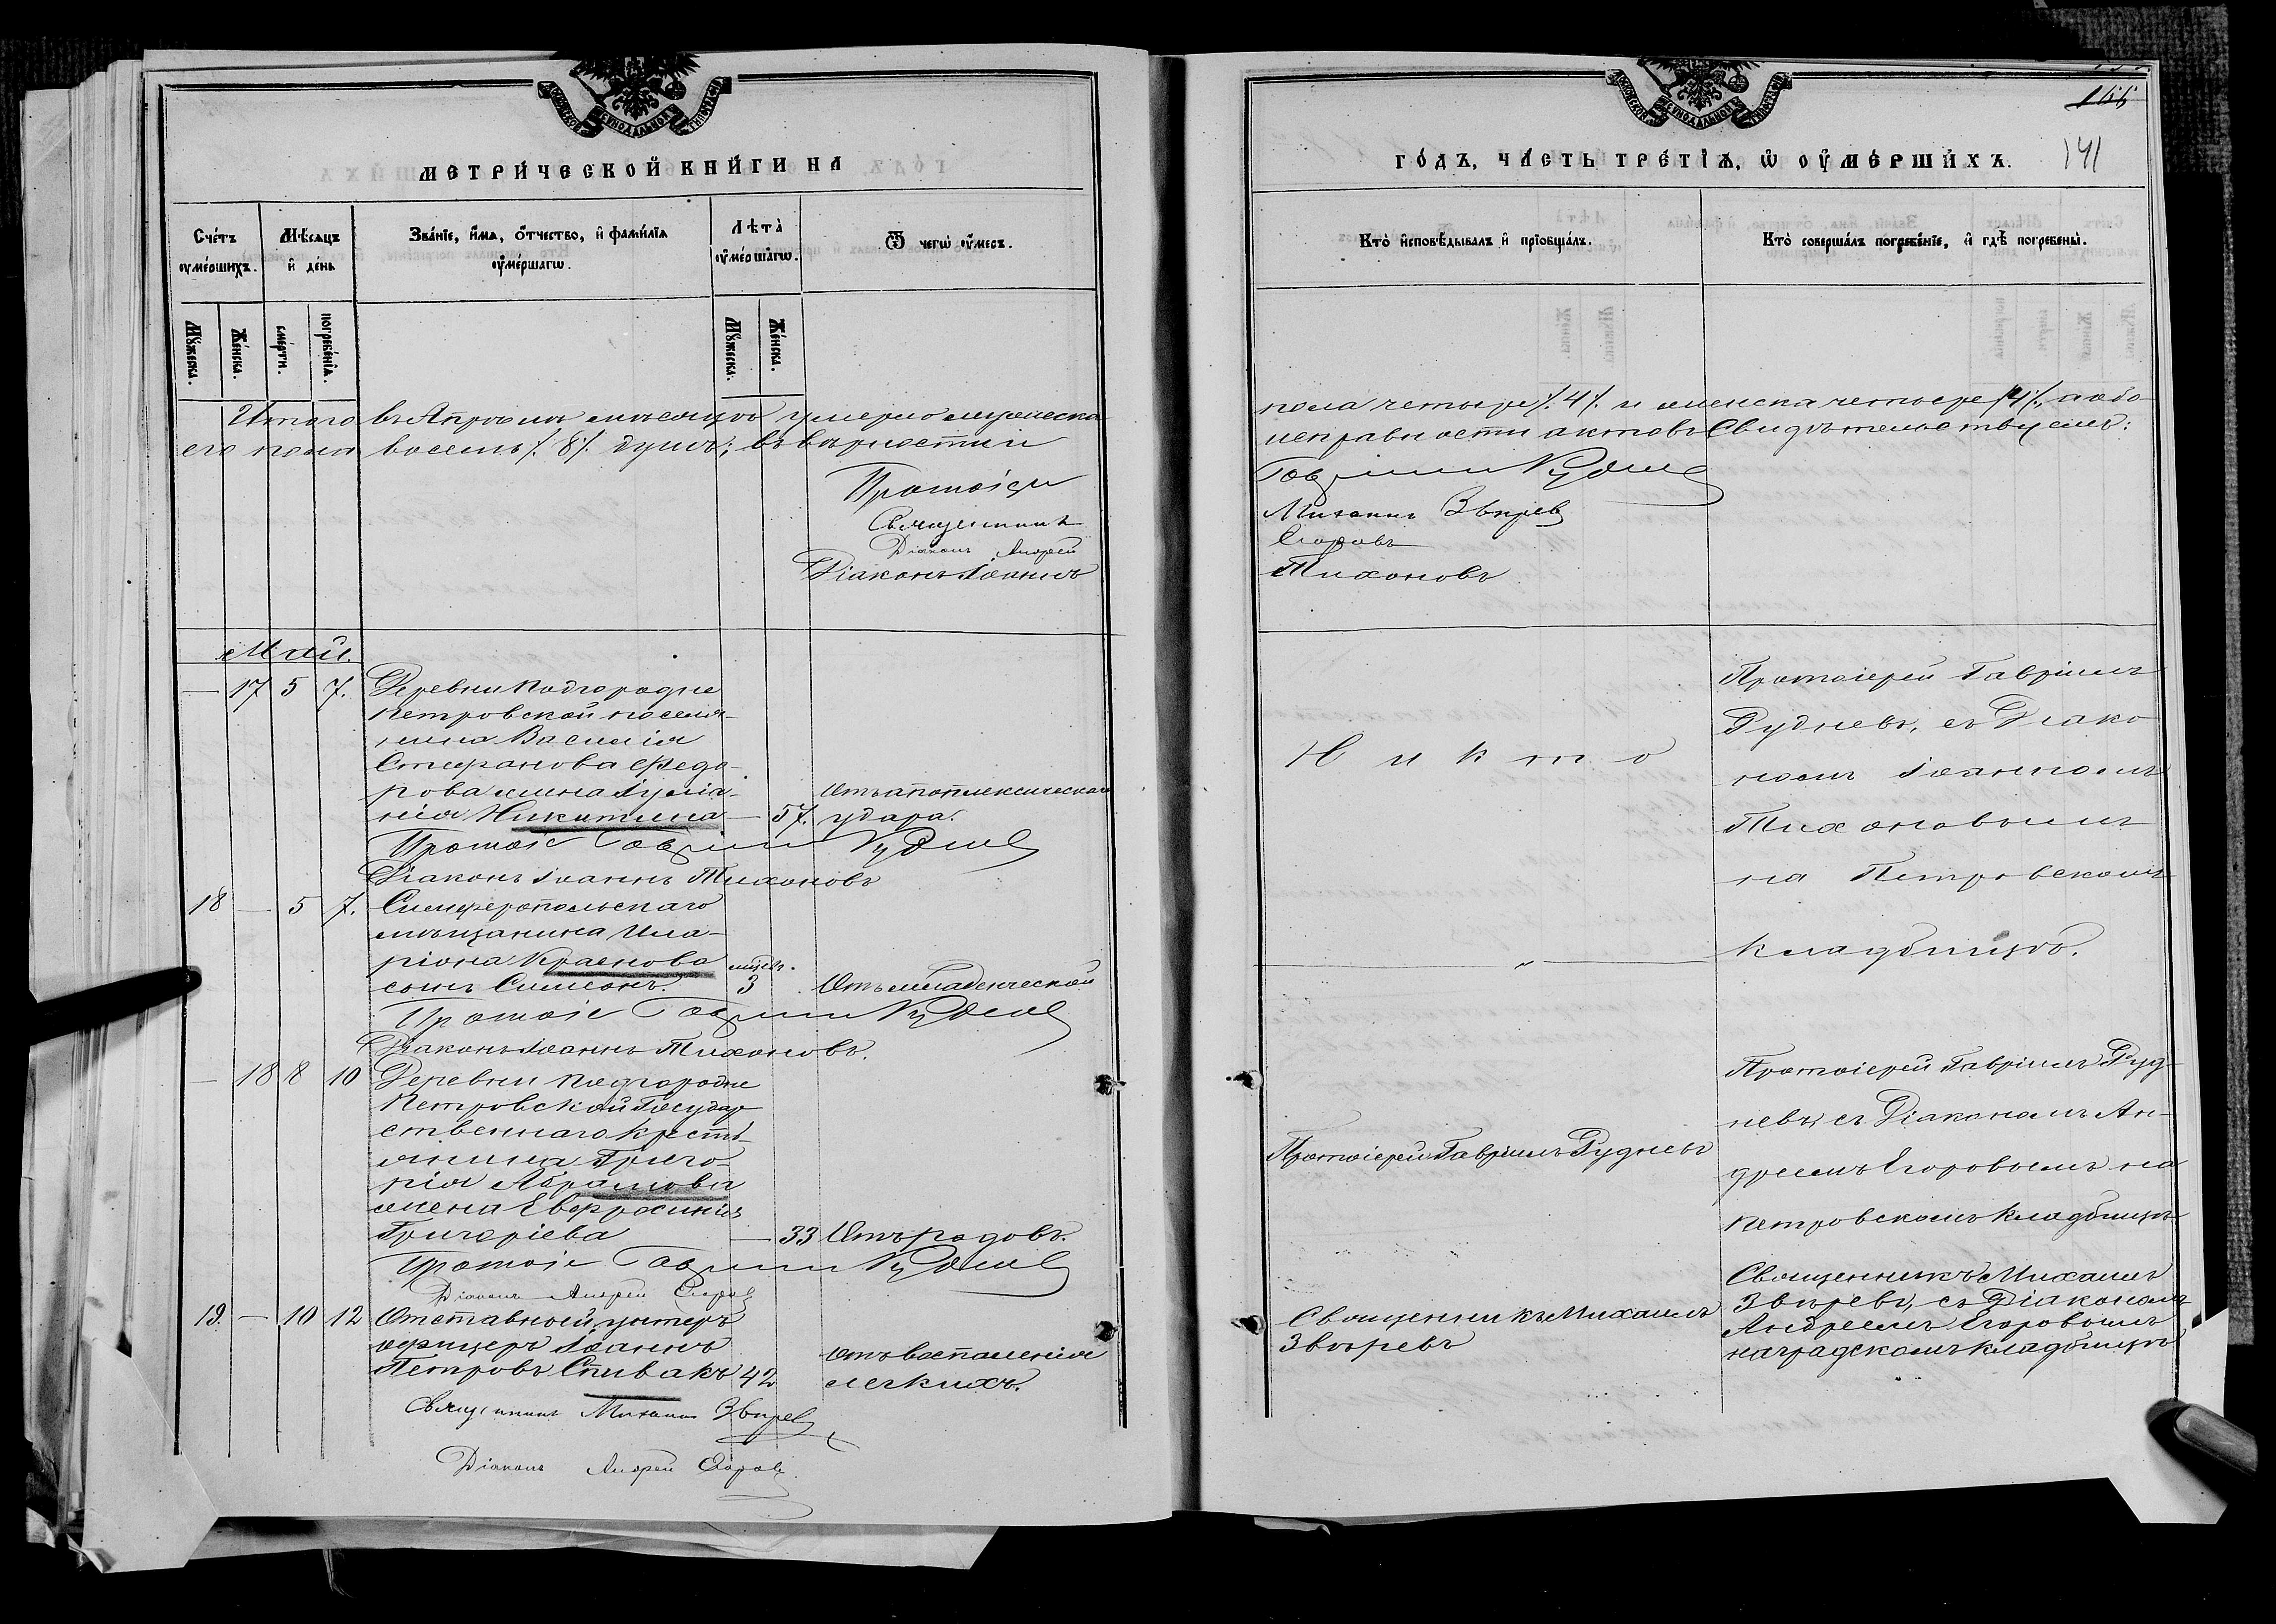 МЕТРИ́ЧЕСКОЙ КНИ́ГИ НА
Сче́тъ ѹме́ршихъ.
Мѣ́сяцъ и де́нь
Зва́нїе, и́мѧ, ѻ҆́тчество, и҆ фами́лїѧ ѹ҆ме́ршагѡ.
Лѣ́та ѹ҆ме́ршагѡ.
Ѿ чегѡ̀ ѹ҆́мерсъ.
Мꙋ́жеска.
Же́нска.
сме́рти.
погребе́нїѧ.
Мꙋ́жеска.
Же́нска.
Итого въ Апрѣлѣ мѣсяцѣ умерло мужеска
его пола восемь ⁒ 8 ⁒ душъ; въ вѣрности и
Протоіе
Священникъ
Діаконъ Андрей
Діаконъ Іоаннъ
Май.
— 17 5 7. Деревни Подгородне
Петровской поселя-
нина Василія
Стефанова Федо-
рова жена Іулiа-
нія Никитина — 57. Отъ апоплексическаго
удара.
Протоіе Гавріилъ Рудневъ
Діаконъ Іоаннъ Тихоновъ
18 — 5 7. Симферопольскаго
мѣщанина Ила-
ріона Краснова
сынъ Симеонъ. мѣсяц. 3 Отъ младенческой
Протоіе Гавріилъ Рудневъ
Діаконъ Іоаннъ Тихоновъ.
— 18 8 10 Деревни Подгородне
Петровской Государ
ственнаго кресть-
янина Григо-
рія Абрамова
жена Евфросинія
Григоріева — 33 Отъ родовъ.
Протоіе Гавріилъ Рудневъ
Діаконъ Андрей Егоровъ
19. — 10 12 Отставной унтеръ
офицеръ Іоаннъ
Петровъ Спивакъ 42 отъ воспаленія
легкихъ.
Священникъ Михаилъ Звѣревъ
Діаконъ Андрей Егоровъ
166
141
ГО́ДЪ, ЧА́СТЬ ТРЕ́ТЇѦ, Ѡ҆ ѸМЕ́РШИХЪ.
Кто̀ и҆сповѣ́дывалъ и҆ прїобща́лъ.
Кто̀ соверша́лъ погребе́нїе, и҆ гдѣ̀ погребены̀.
пола четыре ⁒ 4 ⁒ и женска четыре ⁒ 4 ⁒, а обо
исправности актовъ Свидѣтельствуемъ:
Гавріилъ Рудневъ
Михаилъ Звѣревъ
Егоровъ
Тихоновъ
Никто
Протоіерей Гавріилъ
Рудневъ, съ Діако
номъ Іоанномъ
Тихоновымъ
на Петровскомъ
кладбищѣ.
— „ —
Протоіерей Гавріилъ Рудневъ
Протоіерей Гавріилъ Руд-
невъ съ Діакономъ Ан-
дреемъ Егоровымъ на
Петровскомъ кладбищѣ
Священникъ Михаилъ
Звѣревъ
Священникъ Михаилъ
Звѣревъ, съ Діакономъ
Андреемъ Егоровымъ
на градскомъ кладбищѣ